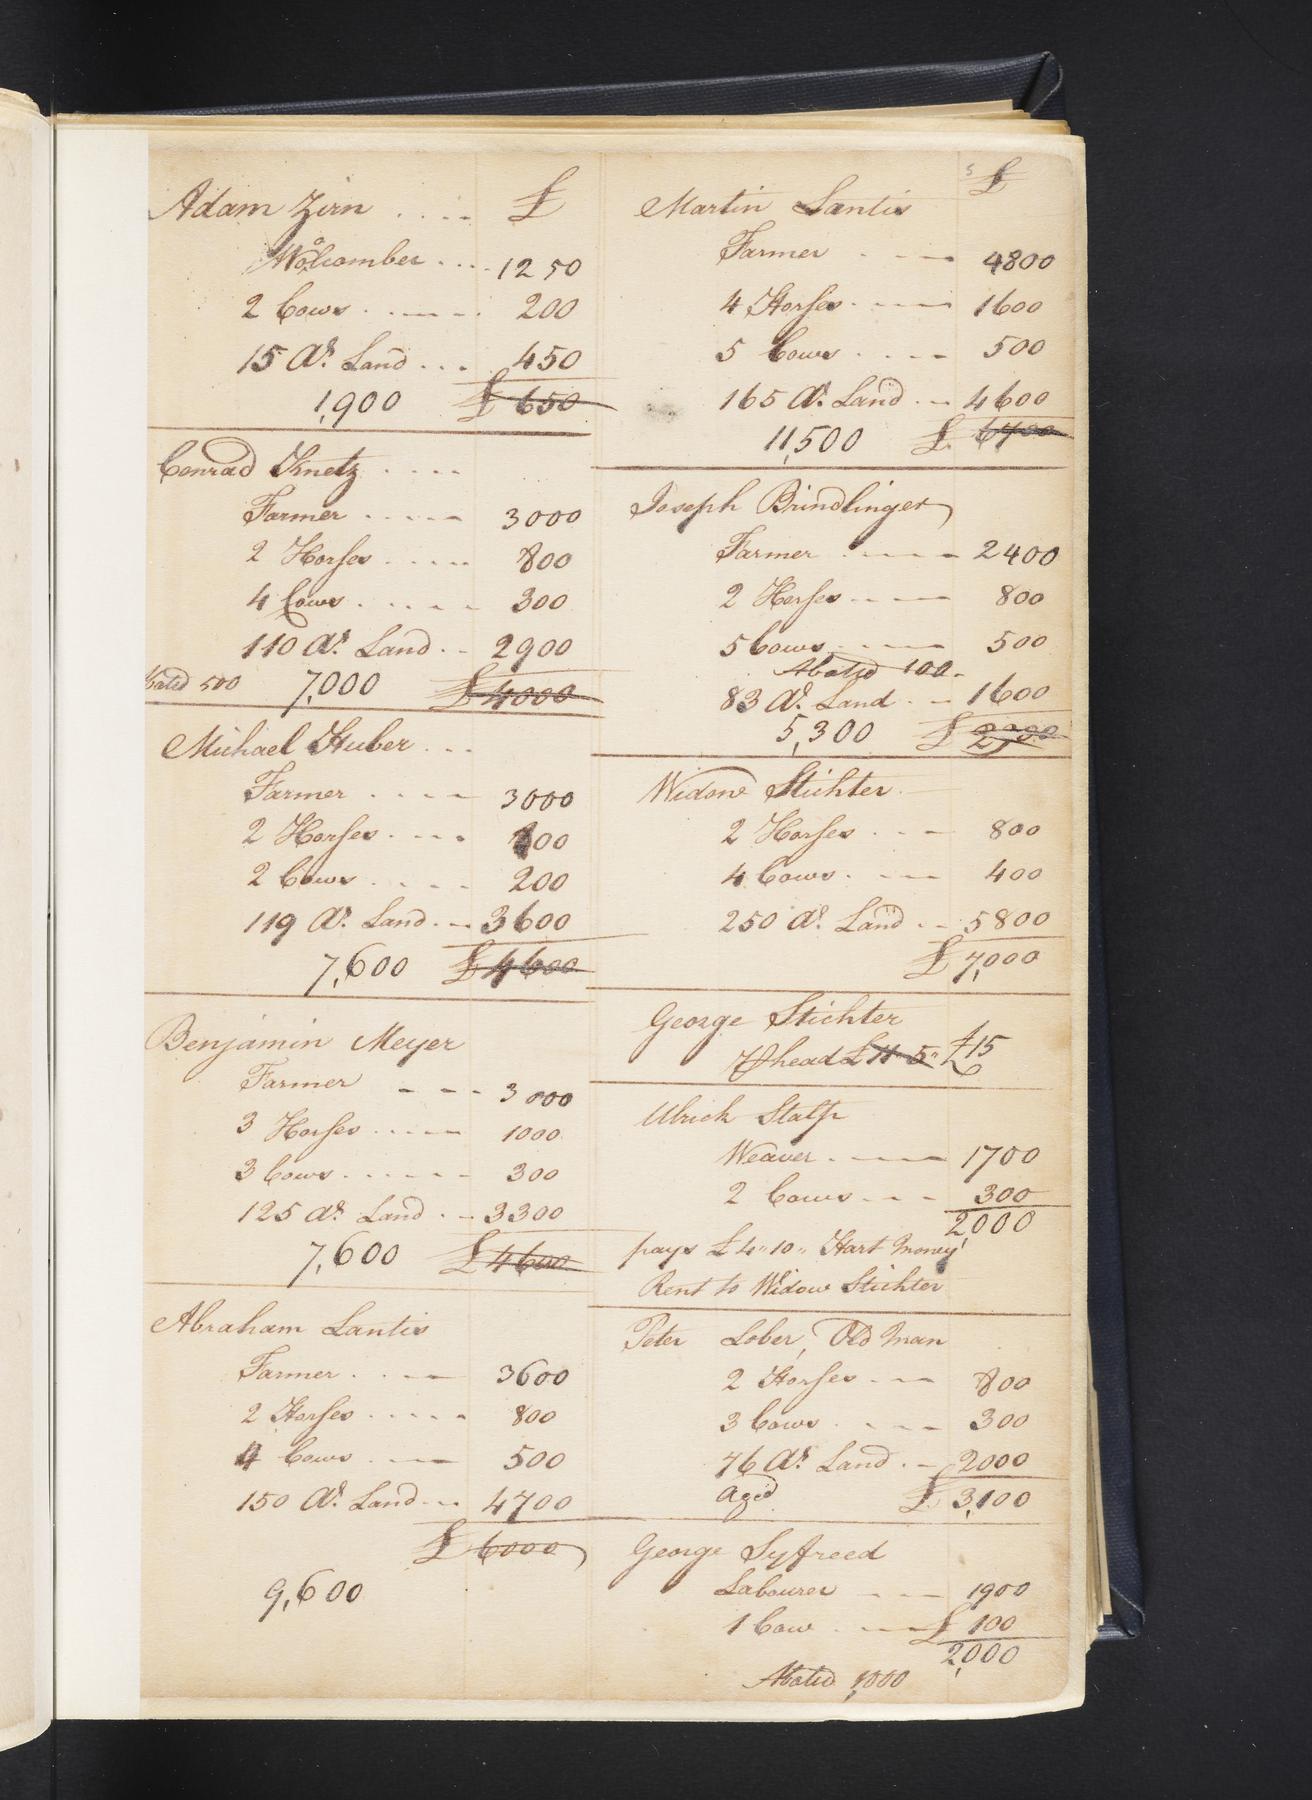 Adam Zirn .... £
Wolcomber .... 1250
2 Cows ..... 200
15 As. Land ... 450
1,900 £ 650
Conrad Knetz ....
Farmer ..... 3000
2 Horses ..... 800
4 Cows ..... 300
110 As. Land .. 2900
bated 500 7,000 £ 4000
Michael Huber ...
Farmer ..... 3000
2 Horses .... 800
2 Cows ..... 200
119 As. Land ... 3600
7,600 £ 4600
Benjamin Meyer
Farmer .... 3000
3 Horses ..... 1000
3 Cows ..... 300
125 As. Land ... 3300
7,600 £ 4600
Abraham Lantis
Farmer .... 3600
2 Horses ..... 800
4 Cows .... 500
150 As. Land ... 4700
£ 6000
9,600
5 £
Martin Lantis
Farmer .... 4800
4 Horses .... 1600
5 Cows .... 500
165 As. Land ... 4600
11,500 £ 6700
Joseph Brindlinger
Farmer .... 2400
2 Horses .... 800
5 Cows .... 500
Abated 100.
83 As. Land ... 1600
5,300 £
Widow Stichter
2 Horses ... 800
4 Cows ... 400
250 As. Land ... 5800
£ 7,000
George Stichter
head £ 11" 5" £15
Ulrich
Weaver .... 1700
2 Cows ... 300
2,000
pays £ 4" 10" Hart Money
Rent to Widow Stichter
Peter Lober, Old Man
2 Horses ... 800
3 Cows .... 300
76 As. Land ... 2000
Aged £ 3,100
George Syfreed
Labourer ... 1900
1 Cow .... £ 100
2,000
Abated 1,000